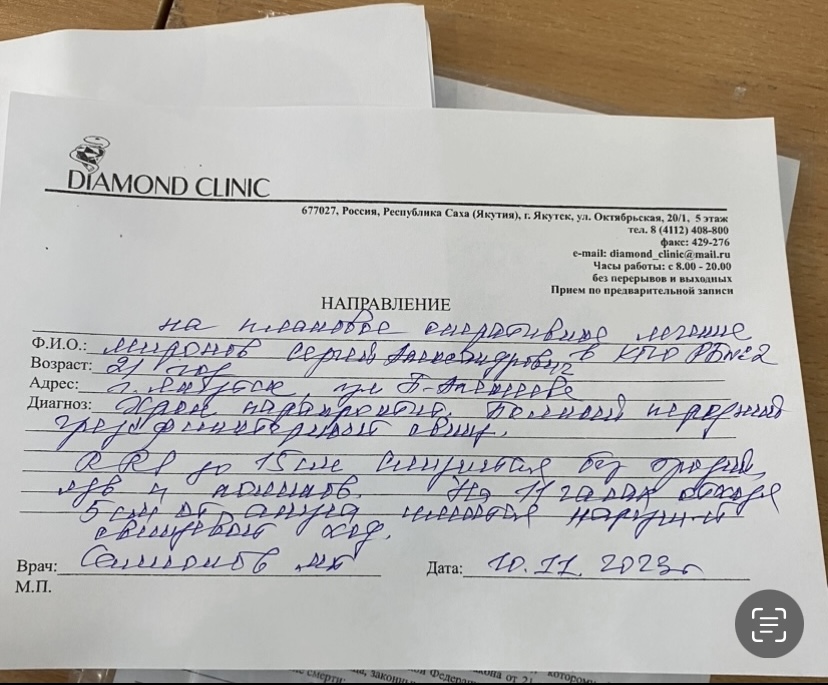 DIAMOND CLINIC
677027, Россия, Республика Саха (Якутия), г. Якутск, ул. Октябрьская, 20/1, 5 этаж
тел. 8 (4112) 408-800
факс: 429-276
e-mail: diamond_clinic@mail.ru
Часы работы: с 8.00 - 20.00
без перерывов и выходных
Прием по предварительной записи
НАПРАВЛЕНИЕ
на плановое оперативное лечение
Ф.И.О.: Миронов Сергей Александрович в КПО РБ№2
Возраст: 21 год
Адрес: г. Якутск, ул
Диагноз: Хрон парапроктит. Полный передний
свищ.
до 15 см без
и На 11 часах
5 см от ануса имеется наружный
свищевой ход.
Врач:
Дата: 10.11.2023г
М.П.